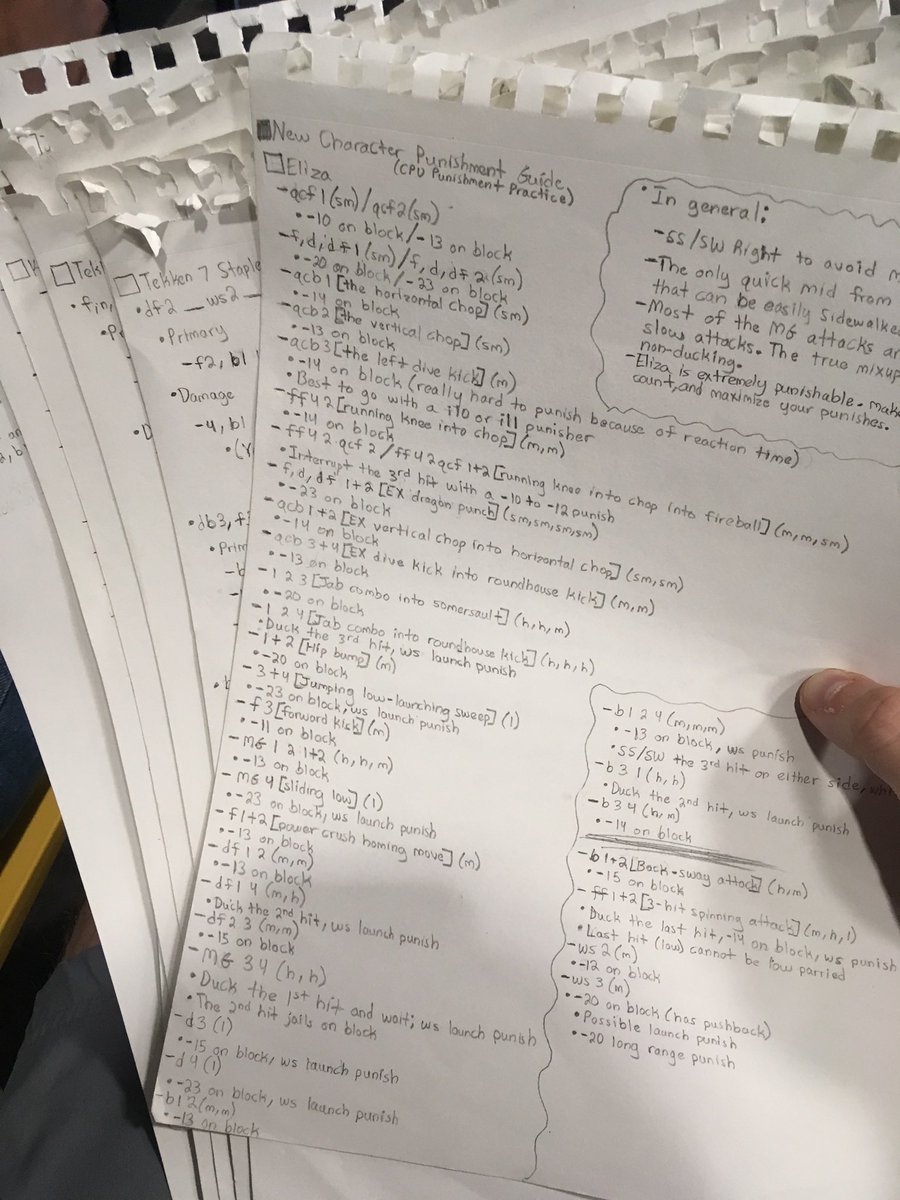 New Character Punishment Guide
(CPU Punishment Practice)
Eliza
-qcf1(sm)/qcf2(sm)
•-10 on block/-13 on block
-f,d,df1(sm)/f,d,df2(sm)
•-20 on block/-23 on block
-qcb1[the horizontal chop](sm)
•-14 on block
-qcb2[the vertical chop](sm)
•-13 on block
-qcb3[the left dive kick](m)
•-14 on block (really hard to punish because of reaction time)
•Best to go with a i10 or i11 punisher
-ff42[running knee into chop](m,m)
•-14 on block
-ff42qcf2/ff42qcf1+2[running knee into chop into fireball](m,m,sm)
•Interrupt the 3rd hit with a -10 to -12 punish
-f,d,df1+2[EX dragon punch](sm,sm,sm,sm)
•-23 on block
-qcb1+2[EX vertical chop into horizontal chop](sm,sm)
•-14 on block
-qcb3+4[EX dive kick into roundhouse kick](m,m)
•-13 on block
-1 2 3[Jab combo into somersault](h,h,m)
•-20 on block
-1 2 4[Jab combo into roundhouse kick](h,h,h)
•Duck the 3rd hit, ws launch punish
-1+2[Hip bump](m)
•-20 on block
-3+4[Jumping low-launching sweep](l)
•-23 on block, ws launch punish
-f3[forward kick](m)
•-11 on block
-MG 1 2 1+2(h,h,m)
•-13 on block
-MG 4[sliding low](l)
•-23 on block, ws launch punish
-f1+2[power crush homing move](m)
•-13 on block
-df1 2(m,m)
•-13 on block
-df1 4(m,h)
•Duck the 2nd hit, ws launch punish
-df2 3(m,m)
•-15 on block
-MG 3 4(h,h)
•Duck the 1st hit and wait; ws launch punish
•The 2nd hit jails on block
-d3(l)
•-15 on block, ws launch punish
-d4(l)
•-23 on block, ws launch punish
-b1 2(m,m)
•-13 on block
•In general:
-SS/SW Right to avoid
-The only quick mid from
that can be easily sidewalke
-Most of the MG attacks ar
slow attacks. The true mixup
non-ducking.
-Eliza is extremely punishable. make
count, and maximize your punishes.
-b1 2 4(m,m,m)
•-13 on block, ws punish
•SS/SW the 3rd hit on either side,
-b3 1(h,h)
•Duck the 2nd hit, ws launch punish
-b3 4(h,m)
•-14 on block
-b1+2[Back-sway attack](h,m)
•-15 on block
-ff1+2[3-hit spinning attack](m,h,l)
•Duck the last hit, -14 on block, ws punish
•Last hit (low) cannot be low parried
-ws2(m)
•-12 on block
-ws3(m)
•-20 on block (has pushback)
•Possible launch punish
•-20 long range punish
Tekken 7 Staple
•df2 _ws2_
•Primary
-f2,b1
•Damage
-4,b1
•db3,f
•Prim
-b
Tek
•f,n,
•P
•D